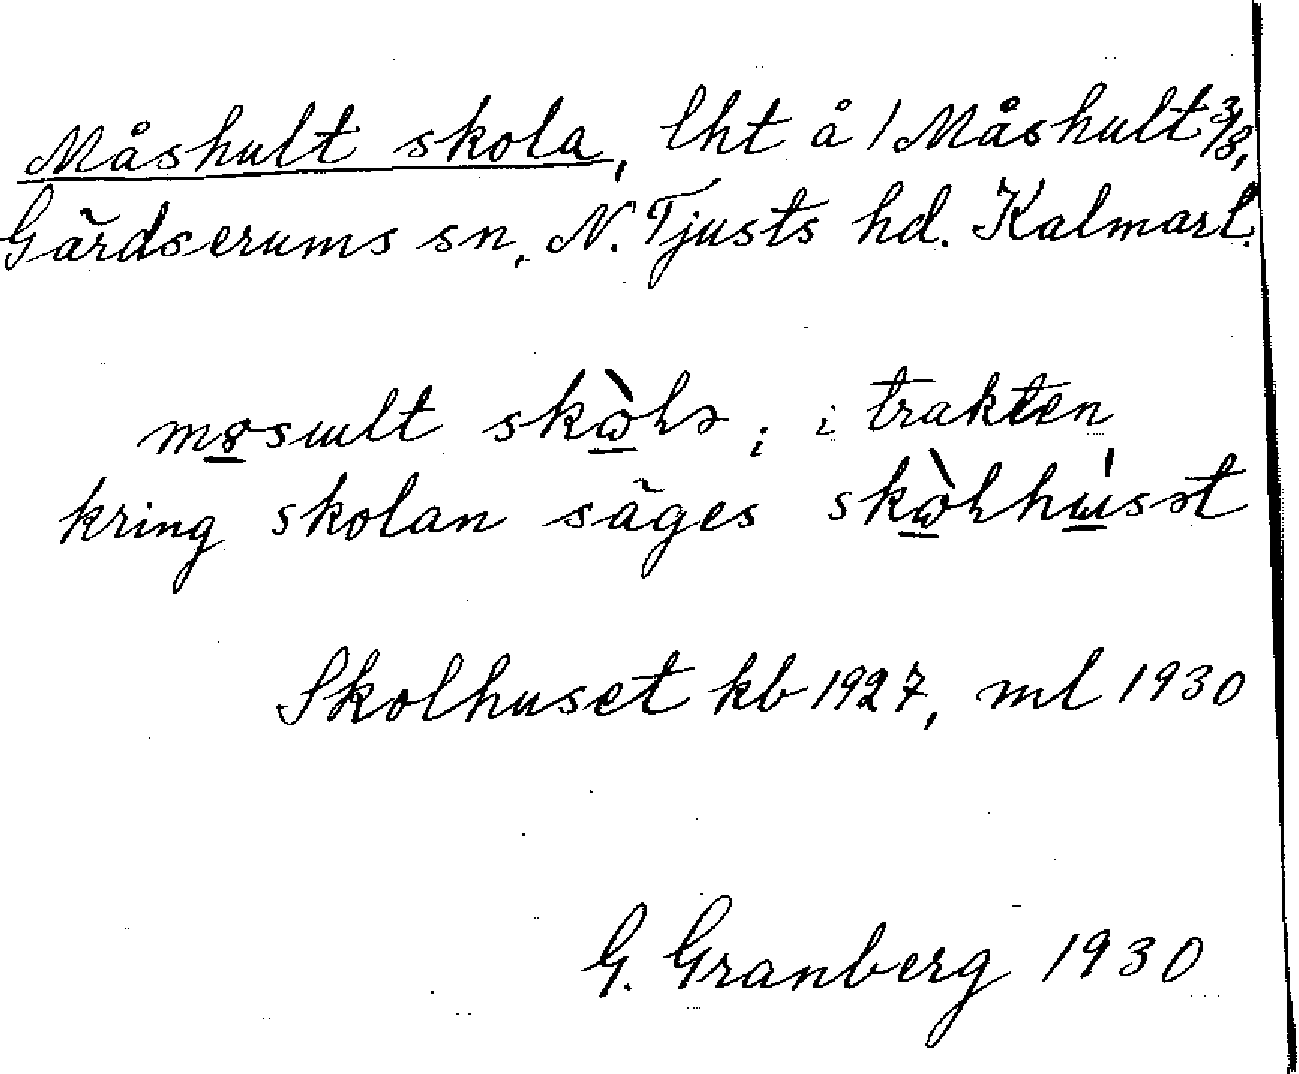 Måshult skola, lht å / Måshult 3/8,
Gärdserums sn, N. Tjusts hd. Kalmarl.
i trakten
kring skolan säges
Skolhuset kb 1927, ml 1930
G. Granberg 1930